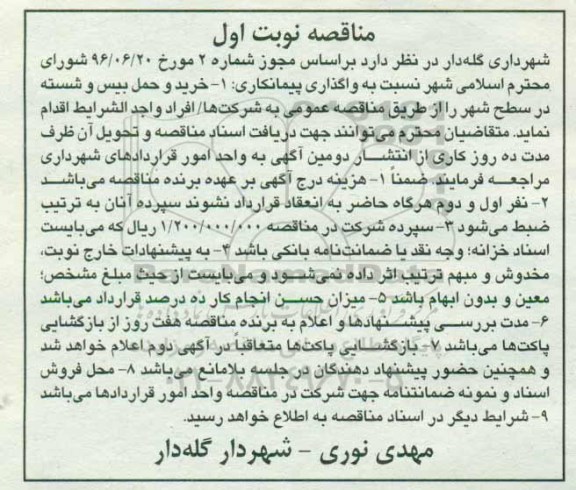 مناقصه نوبت اول
شهرداری گله‌دار در نظر دارد براساس مجوز شماره ۲ مورخ ۹۶/۰۶/۲۰ شورای
محترم اسلامی شهر نسبت به واگذاری پیمانکاری: ۱- خرید و حمل بیس و شسته
در سطح شهر را از طریق مناقصه عمومی به شرکت‌ها/ افراد واجد الشرایط اقدام
نماید. متقاضیان محترم می‌توانند جهت دریافت اسناد مناقصه و تحویل آن ظرف
مدت ده روز کاری از انتشار دومین آگهی به واحد امور قراردادهای شهرداری
مراجعه فرمایند. ضمناً ۱- هزینه درج آگهی بر عهده برنده مناقصه می‌باشد
۲- نفر اول و دوم هرگاه حاضر به انعقاد قرارداد نشوند سپرده آنان به ترتیب
ضبط می‌شود ۳- سپرده شرکت در مناقصه ۱/۲۰۰/۰۰۰/۰۰۰ ریال که می‌بایست
اسناد خزانه؛ وجه نقد یا ضمانت‌نامه بانکی باشد ۴- به پیشنهادات خارج نوبت،
مخدوش و مبهم ترتیب اثر داده نمی‌شود و می‌بایست از حیث مبلغ مشخص؛
معین و بدون ابهام باشد ۵- میزان حسن انجام کار ده درصد قرارداد می‌باشد
۶- مدت بررسی پیشنهادها و اعلام به برنده مناقصه هفت روز از بازگشایی
پاکت‌ها می‌باشد ۷- بازگشایی پاکت‌ها متعاقباً در آگهی دوم اعلام خواهد شد
و همچنین حضور پیشنهاد دهندگان در جلسه بلامانع می‌باشد ۸- محل فروش
اسناد و نمونه ضمانتنامه جهت شرکت در مناقصه واحد امور قراردادها می‌باشد
۹- شرایط دیگر در اسناد مناقصه به اطلاع خواهد رسید.
مهدی نوری - شهردار گله‌دار
ParsNamadData
۰۲۱-۸۸۳۴۹۶۷۰-۵